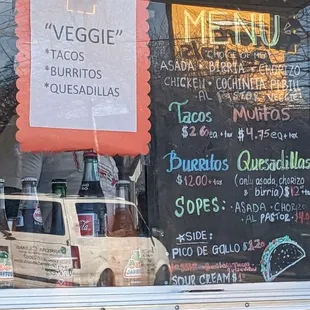 "VEGGIE"
*TACOS
*BURRITOS
*QUESADILLAS
MENU
CHOICE OF MEAT
ASADA • BIRRIA • CHORIZO
CHICKEN • COCHINITA PIBIL
AL PASTOR VEGGIE
Tacos Mulitas
$4.75 ea + tax
Burritos Quesadillas
$12.00 + tax
(only asada, chorizo
+ birria) $12 + tax
SOPES: ASADA • CHORIZO
AL PASTOR
*SIDE:
PICO DE GALLO
SOUR CREAM $1